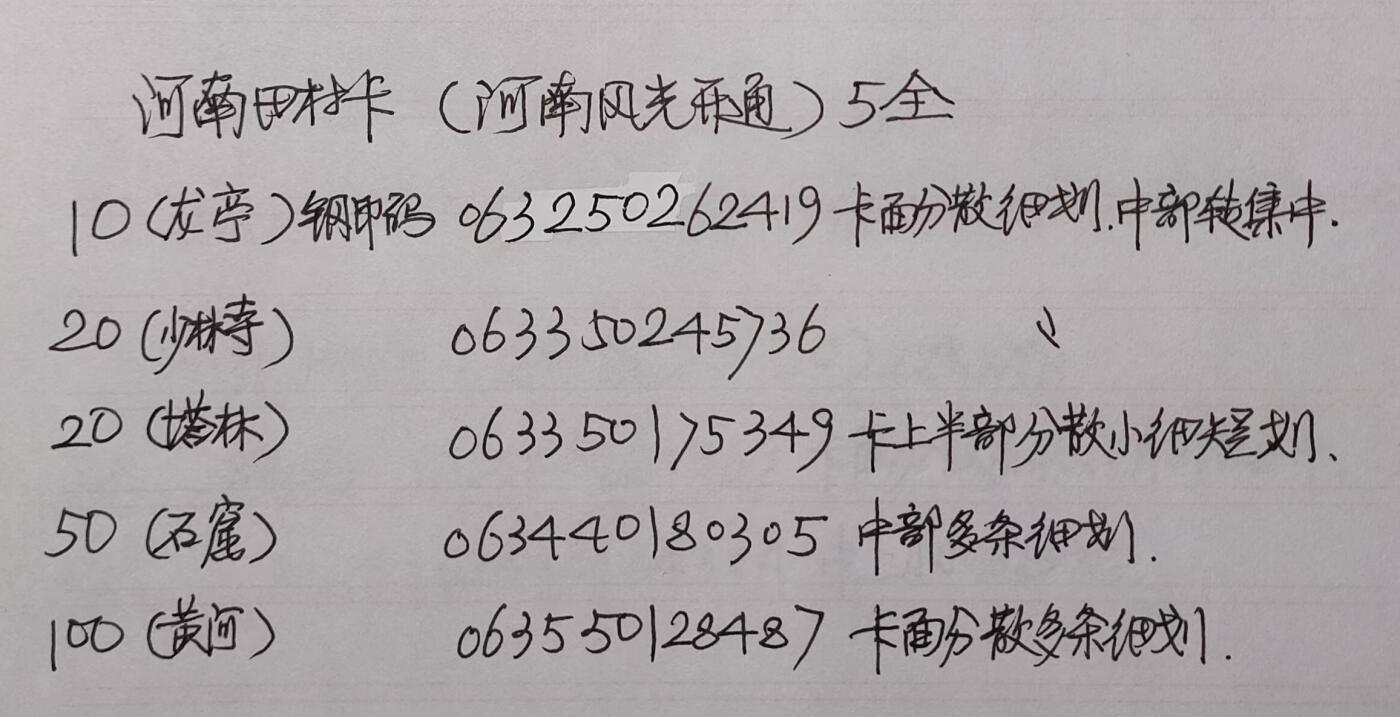 河南田村卡（河南风光开通）5全
10（龙亭）钢印码 063250262419 卡面分散细划.中部转集中.
20（少林寺） 063350245736 、
20（塔林） 063350175349 卡上半部分散小细短划、
50（石窟） 063440180305 中部多条细划.
100（黄河） 063550128487 卡面分散多条细划.